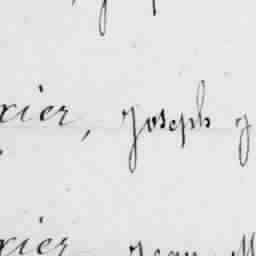 xier, Joseph J
xier Jean M